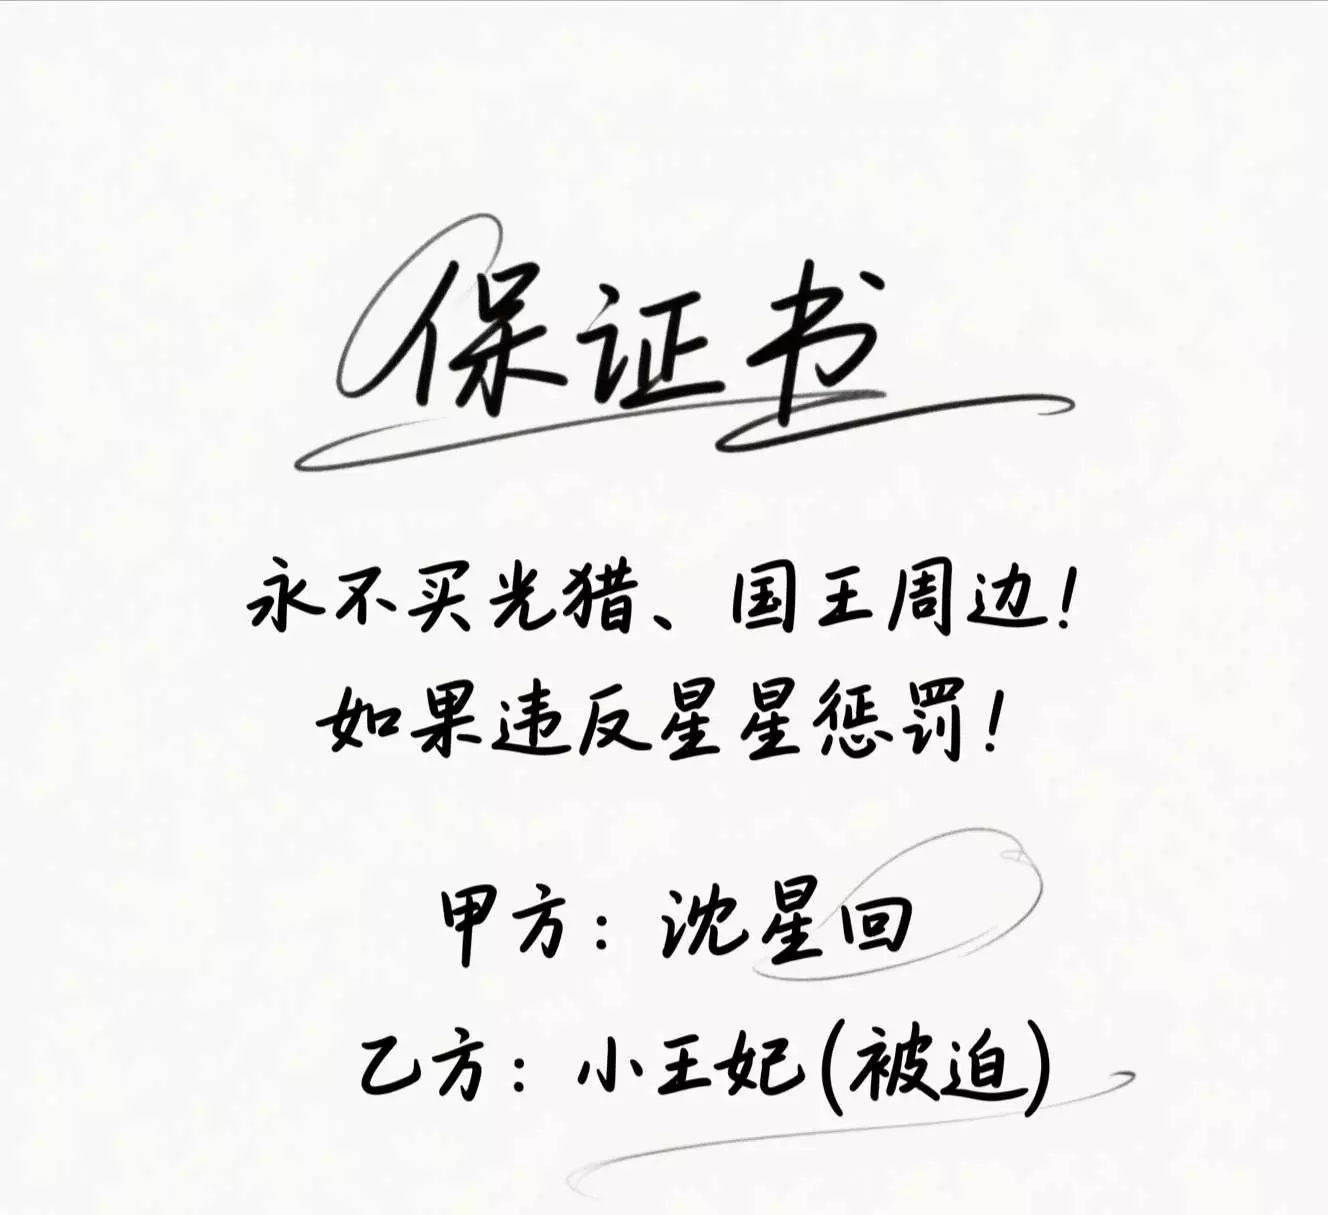 保证书
永不买光猎、国王周边!
如果违反星星惩罚!
甲方：沈星回
乙方：小王妃(被迫)